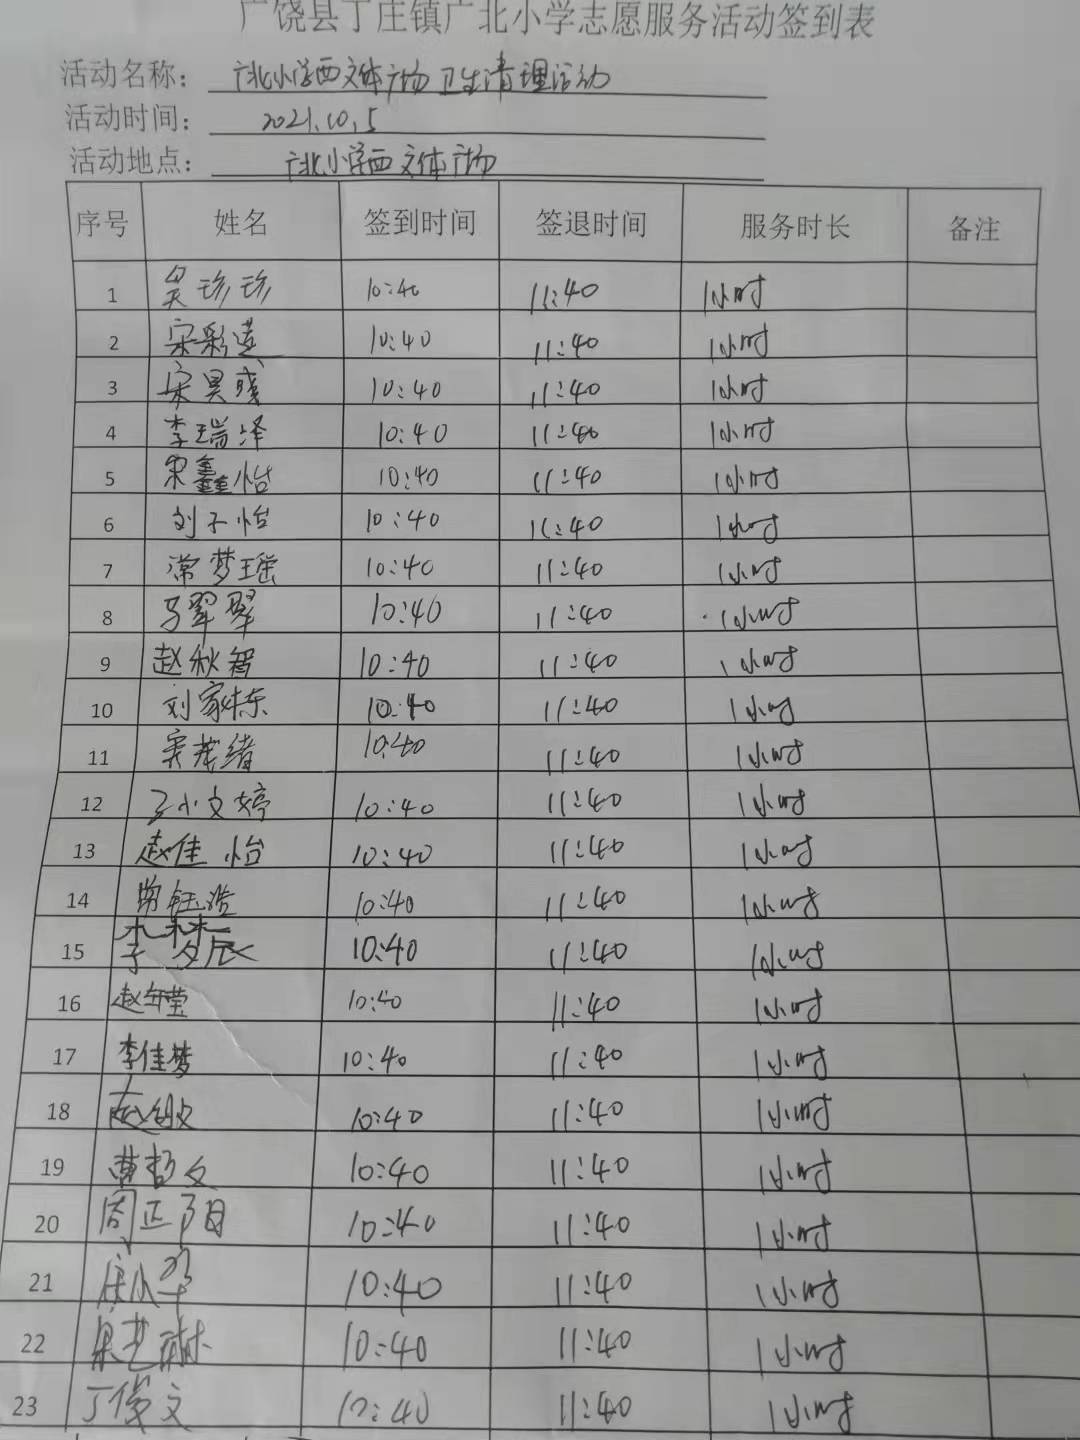 广饶县丁庄镇广北小学志愿服务活动签到表
活动名称： 广北小学西文体广场卫生清理活动
活动时间： 2021.10.5
活动地点： 广北小学西文体广场
序号 姓名 签到时间 签退时间 服务时长 备注
1 吴珍珍 10:40 11:40 1小时
2 宋彩莲 10:40 11:40 1小时
3 宋昊彧 10:40 11:40 1小时
4 李瑞泽 10:40 11:40 1小时
5 宋鑫怡 10:40 11:40 1小时
6 刘子怡 10:40 11:40 1小时
7 常梦瑶 10:40 11:40 1小时
8 马翠翠 10:40 11:40 1小时
9 赵秋智 10:40 11:40 1小时
10 刘家栋 10:40 11:40 1小时
11 10:40 11:40 1小时
12 文婷 10:40 11:40 1小时
13 赵佳怡 10:40 11:40 1小时
14 常钰浩 10:40 11:40 1小时
15 李梦辰 10:40 11:40 1小时
16 赵莹 10:40 11:40 1小时
17 李佳梦 10:40 11:40 1小时
18 赵 10:40 11:40 1小时
19 曹哲文 10:40 11:40 1小时
20 周正阳 10:40 11:40 1小时
21 10:40 11:40 1小时
22 艺琳 10:40 11:40 1小时
23 丁俊文 10:40 11:40 1小时